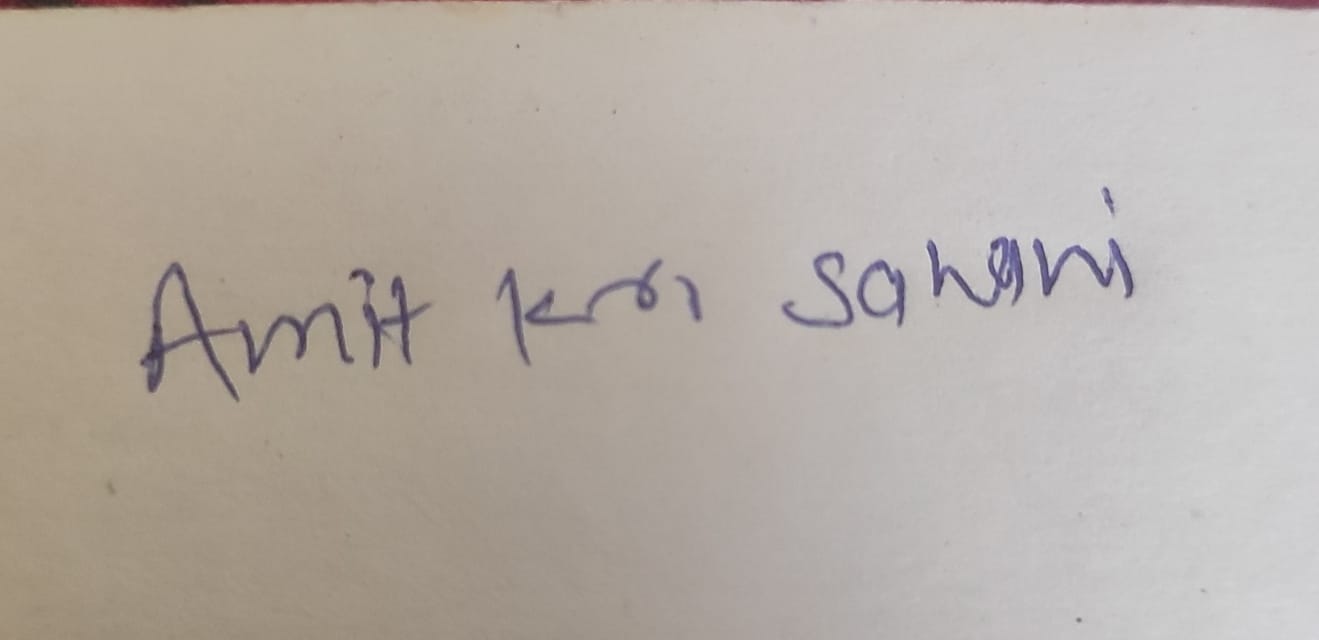 Amit kr. Sahani